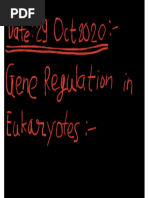 Date: 29 Oct 2020:-
Gene Regulation in
Eukaryotes:-